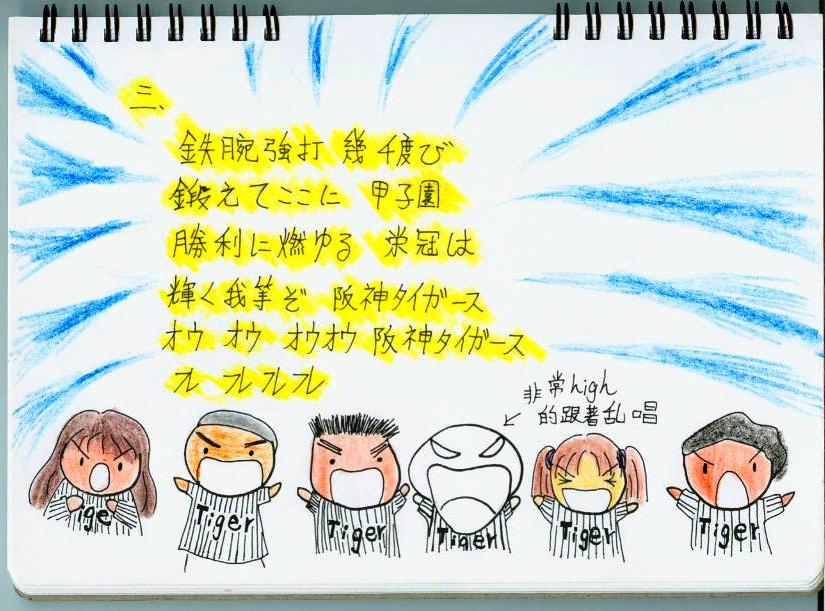 三、
鉄腕強打 幾千度び
鍛えてここに 甲子園
勝利に燃ゆる 栄冠は
輝く我等ぞ 阪神タイガース
オウ オウ オウオウ 阪神タイガース
フレ フレフレフレ
非常high
的跟著乱唱
ige
Tiger
Tiger
Tiger
Tiger
Tiger